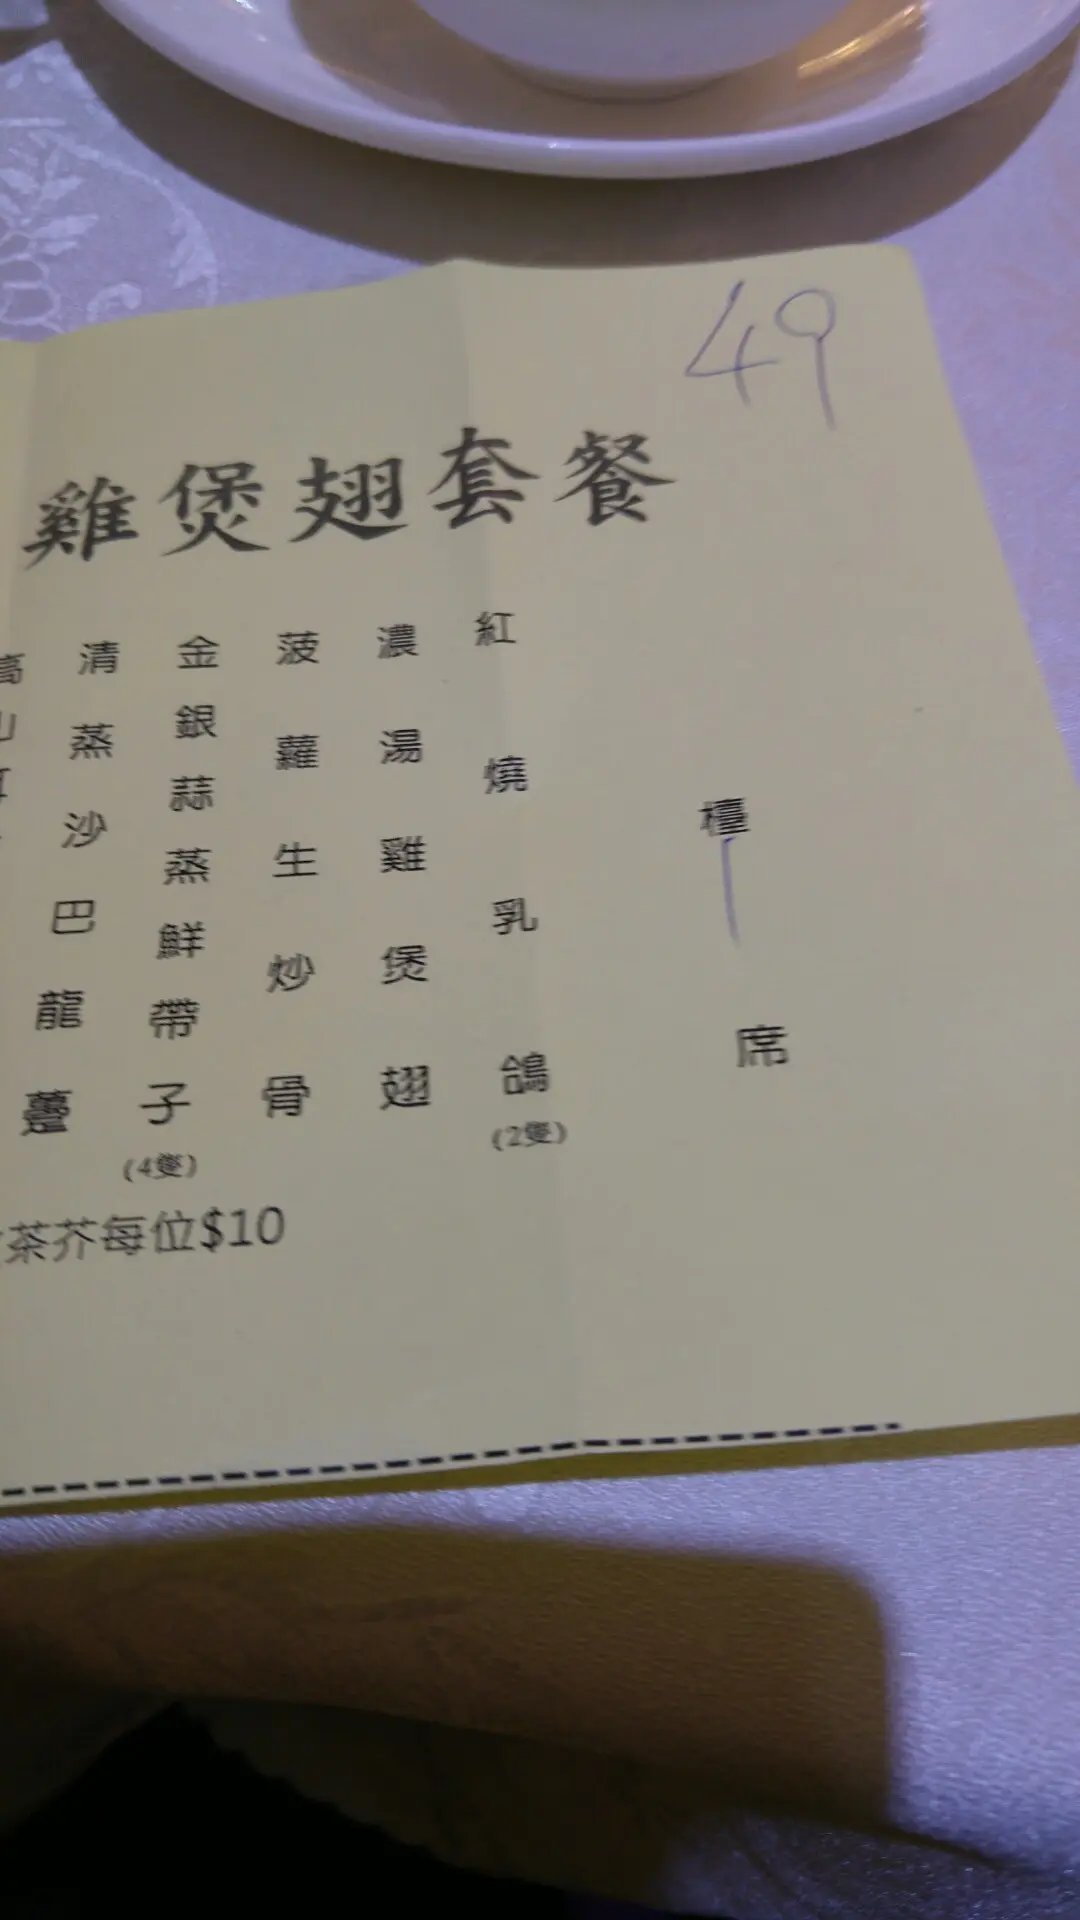 49
雞煲翅套餐
檯席
紅燒乳鴿
(2隻)
濃湯雞煲翅
菠蘿生炒骨
金銀蒜蒸鮮帶子
(4隻)
清蒸沙巴龍躉
高山
茶芥每位$10